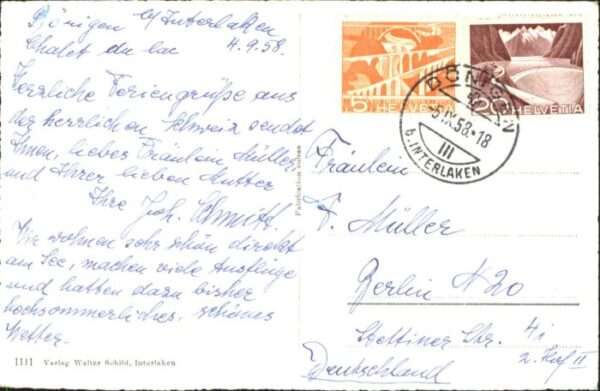 Bönigen b/Interlaken
Chalet du lac 4.9.58.
Herzliche Feriengrüße aus
der herrlichen Schweiz sendet
Ihnen, liebes Fräulein Müller
und Ihrer lieben Mutter
Ihre Joh. Schmitt.
Wir wohnen sehr schön direkt
am See, machen viele Ausflüge
und hatten dazu bisher
hochsommerliches, schönes
Wetter.
1111 Verlag Walter Schild, Interlaken
Fabrication suisse
5 HELVETIA
20 HELVETIA
BÖNIGEN
-5.IX.58.-18
III
b. INTERLAKEN
Fräulein
F. Müller
Berlin N20
Stettiner Str. 4i
2. Hof II
Deutschland